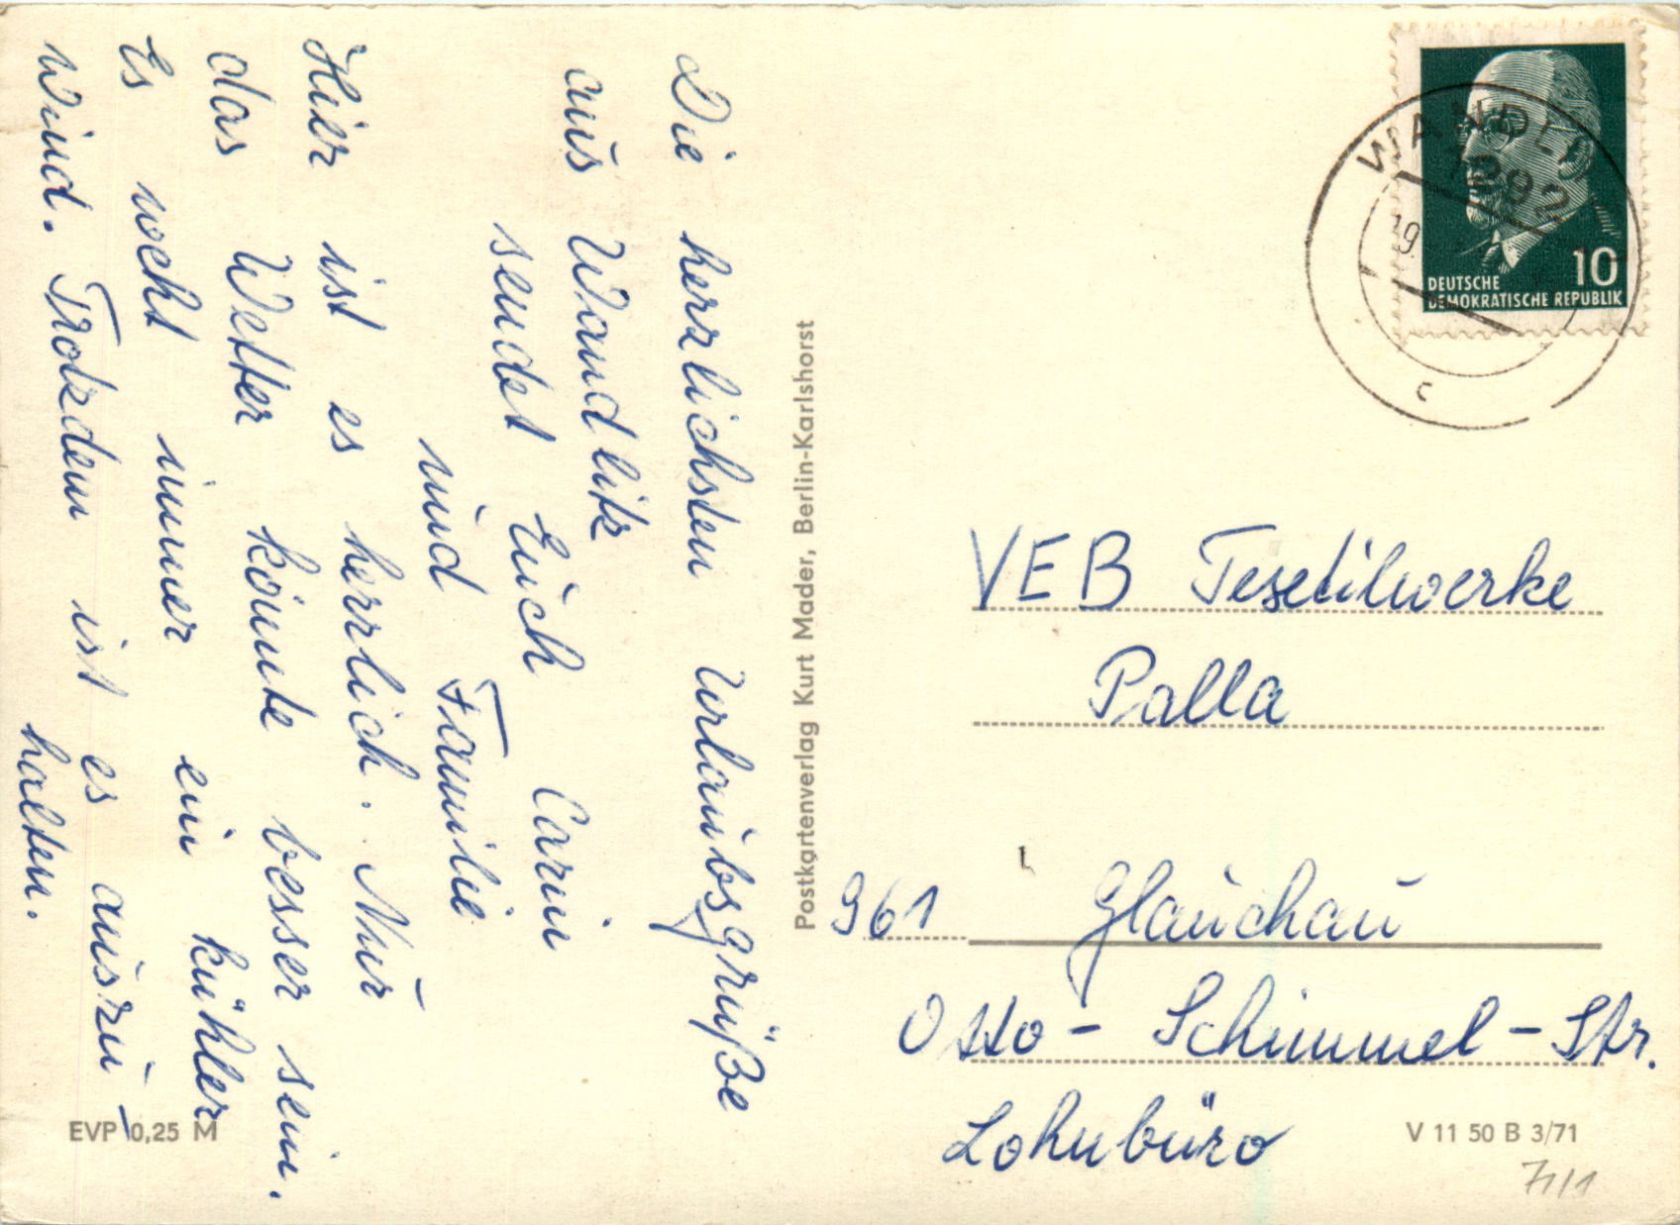 Die herzlichsten Urlaubsgrüße
aus Wandlitz
sendet Euch Carin
und Familie
Hier ist es herrlich. Nur
das Wetter könnte besser sein.
Es weht immer ein kühler
Wind. Trotzdem ist es auszu
halten.
EVP 0,25 M
Postkartenverlag Kurt Mader, Berlin-Karlshorst
WANDL
1292
19
c
10
DEUTSCHE
DEMOKRATISCHE REPUBLIK
VEB Tesetilwerke
Palla
961 Glauchau
Otto-Schimmel-Str.
Lohnbüro
V 11 50 B 3/71
71/1